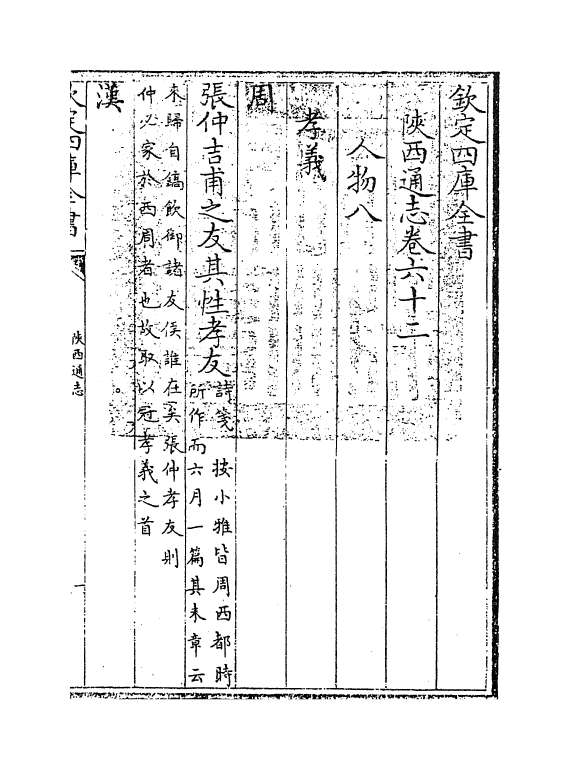 欽定四庫全書
陝西通志卷六十二
人物八
孝義
周
張仲吉甫之友其性孝友詩箋　按小雅皆周西都時
所作而六月一篇其末章云
來歸自鎬飲御諸友侯誰在矣張仲孝友則
仲必家於西周者也故取以冠孝義之首
漢
欽定四庫全書
陝西通志
一